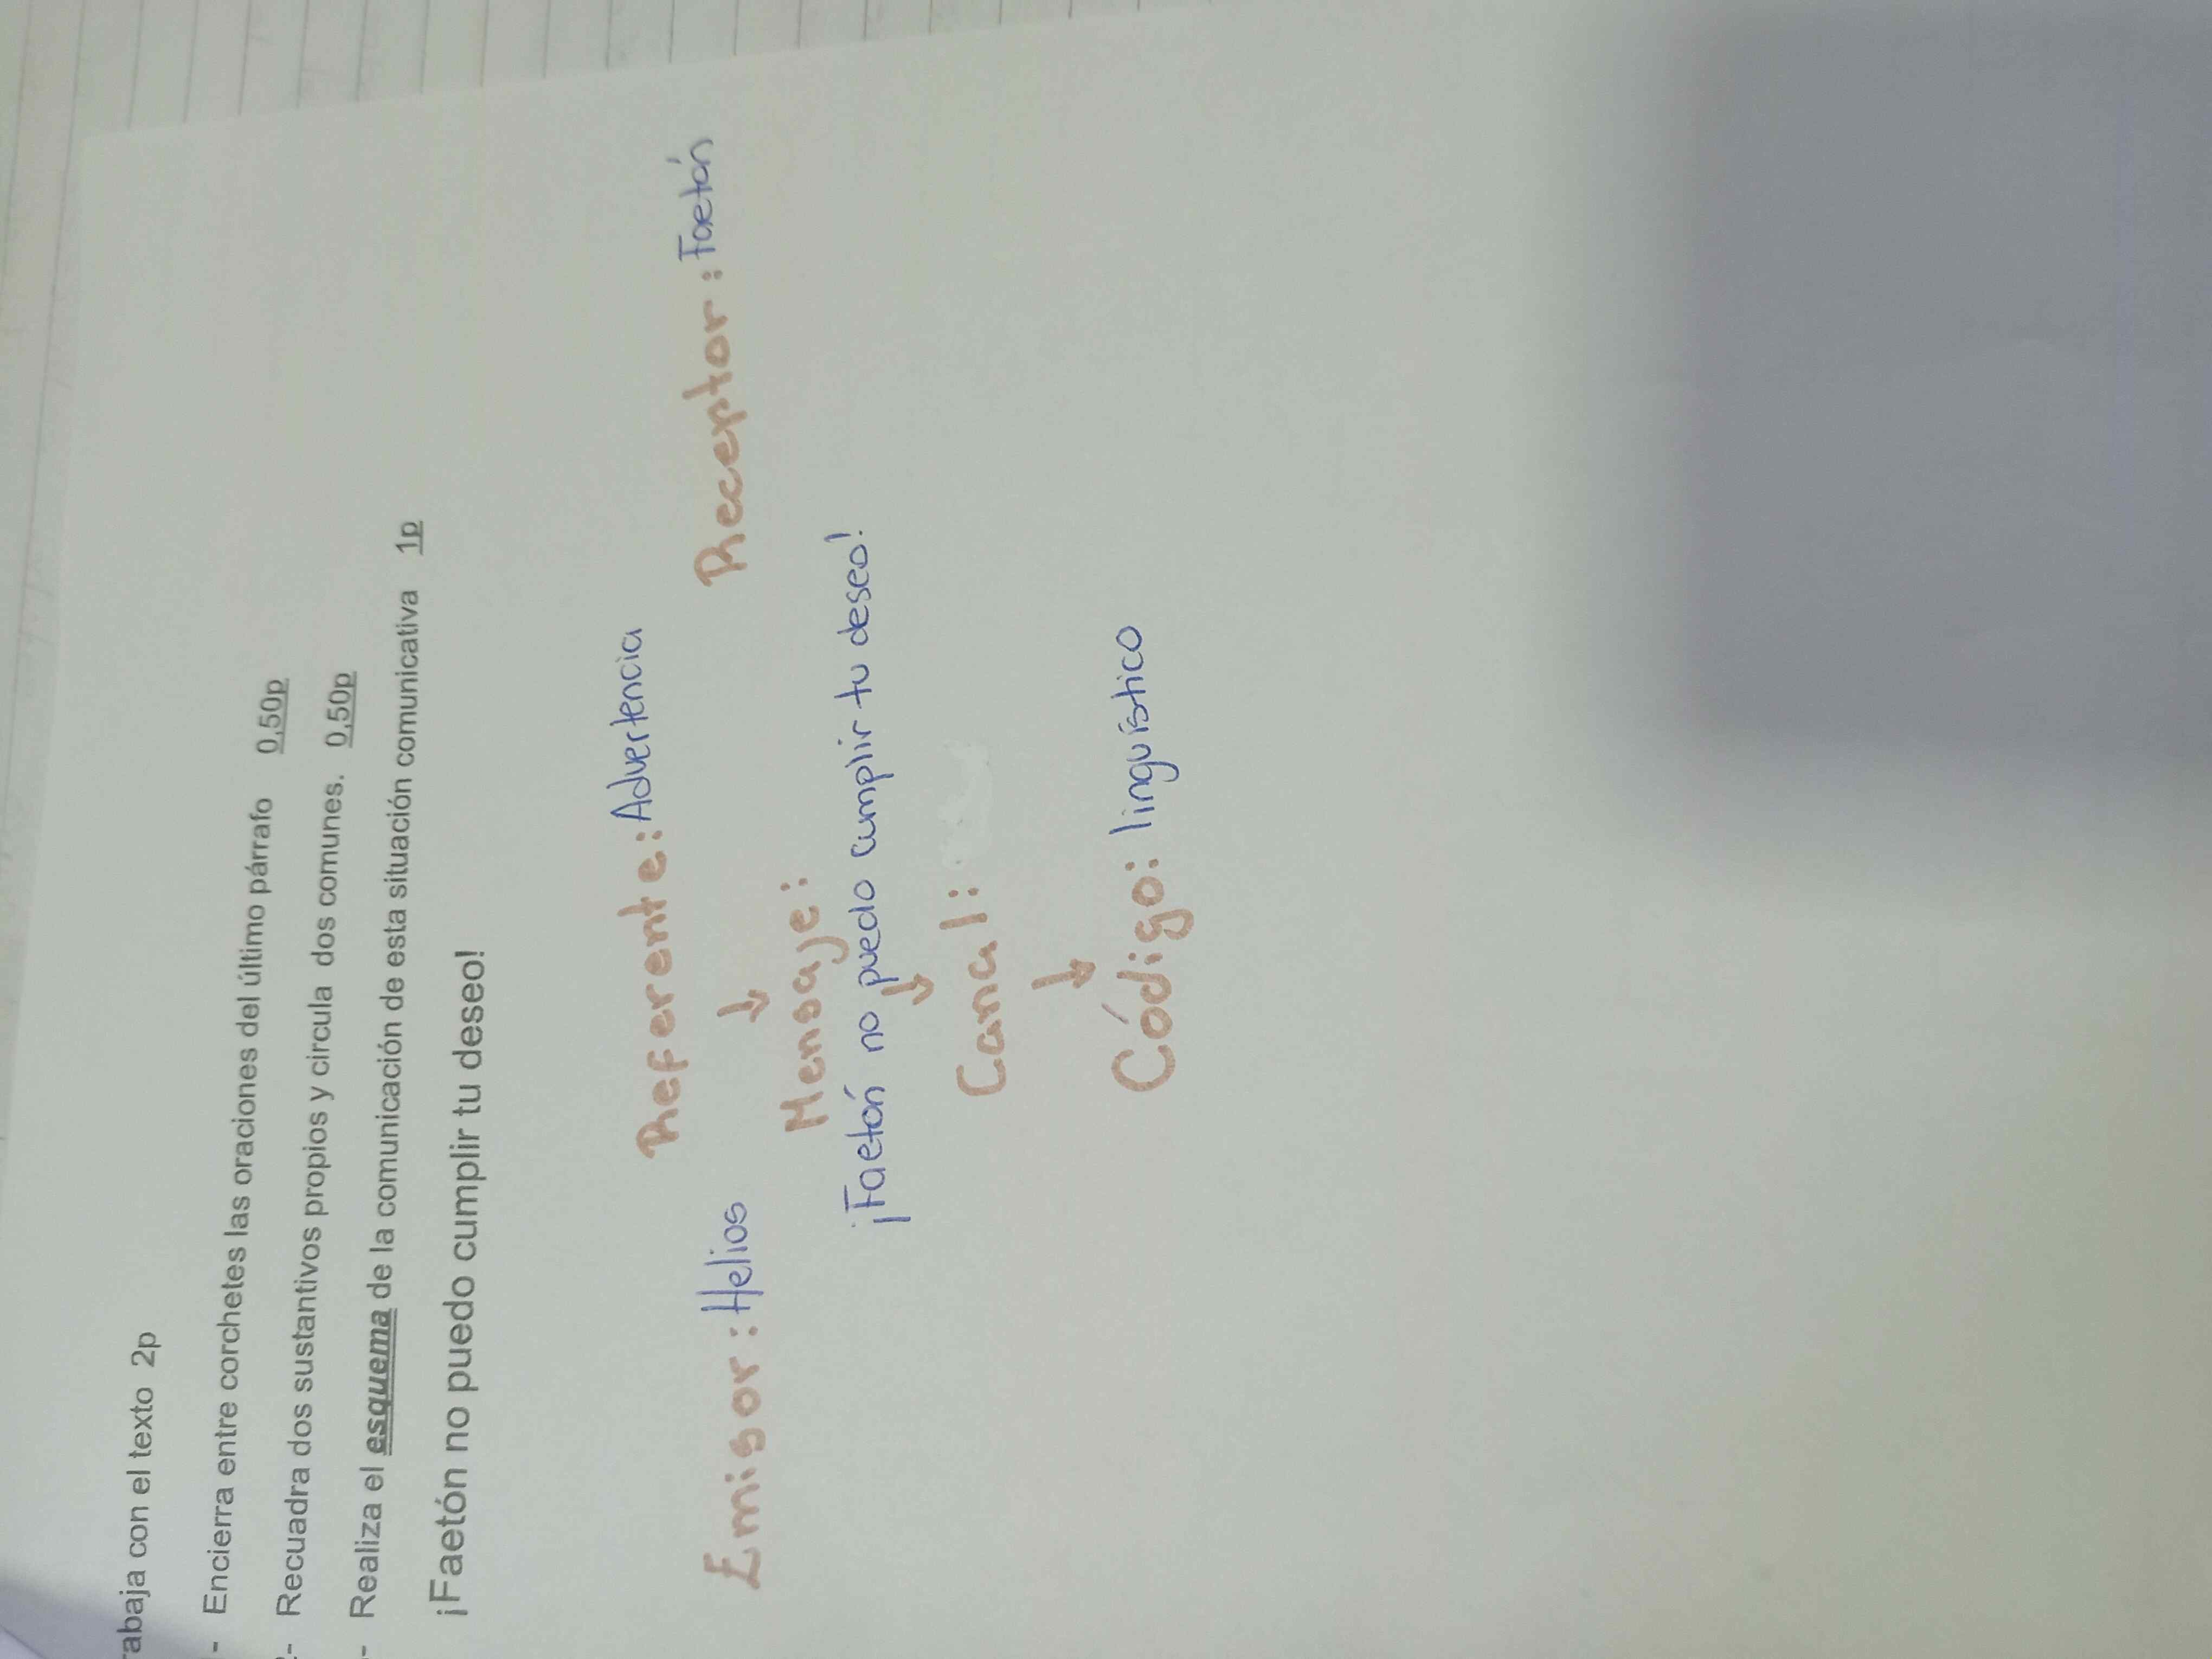 abaja con el texto 2p
- Encierra entre corchetes las oraciones del último párrafo 0,50p
- Recuadra dos sustantivos propios y circula dos comunes. 0,50p
- Realiza el esquema de la comunicación de esta situación comunicativa 1p
¡Faetón no puedo cumplir tu deseo!
Referente: Advertencia
Emisor: Helios
Receptor: Faetón
Mensaje:
¡Faetón no puedo cumplir tu deseo!
Canal:
Código: linguístico